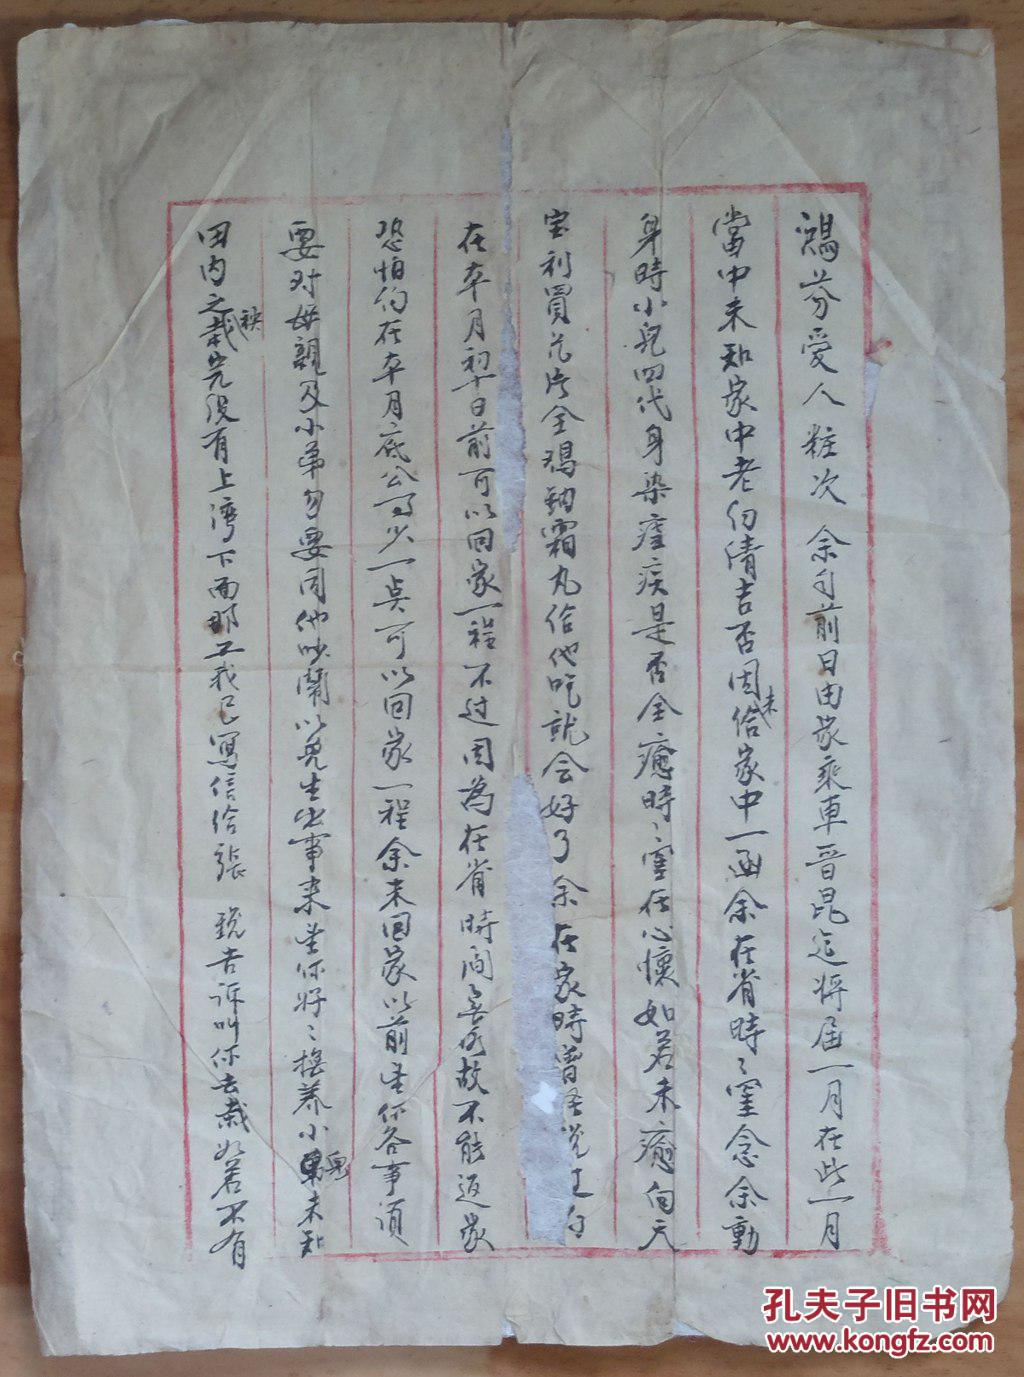 鴻芬受人粧次 余自前日由家乘車晋昆迄將屆一月在此一月
當中未知家中老幼清吉否因未給家中一函余在省時々罣念余動
身時小兒四代身染瘧疾是否全癒時々罣在心懷如若未癒向天
宝利買瓦片全鸡納霜丸给他吃就会好了余在家時曾经说过
在本月初十日前可以回家一程不过因為在省時间故不能返家
恐怕仍在本月底公事少一点可以回家一程余未回家以前望你各事須
要对母親及小弟勿要同他吵鬧以免生出事来望你好々撫養小兒未知
田内之秧栽完没有上湾下面那工我已寫信给張 说告訴叫你去栽如若不有
孔夫子旧书网
www.kongfz.com